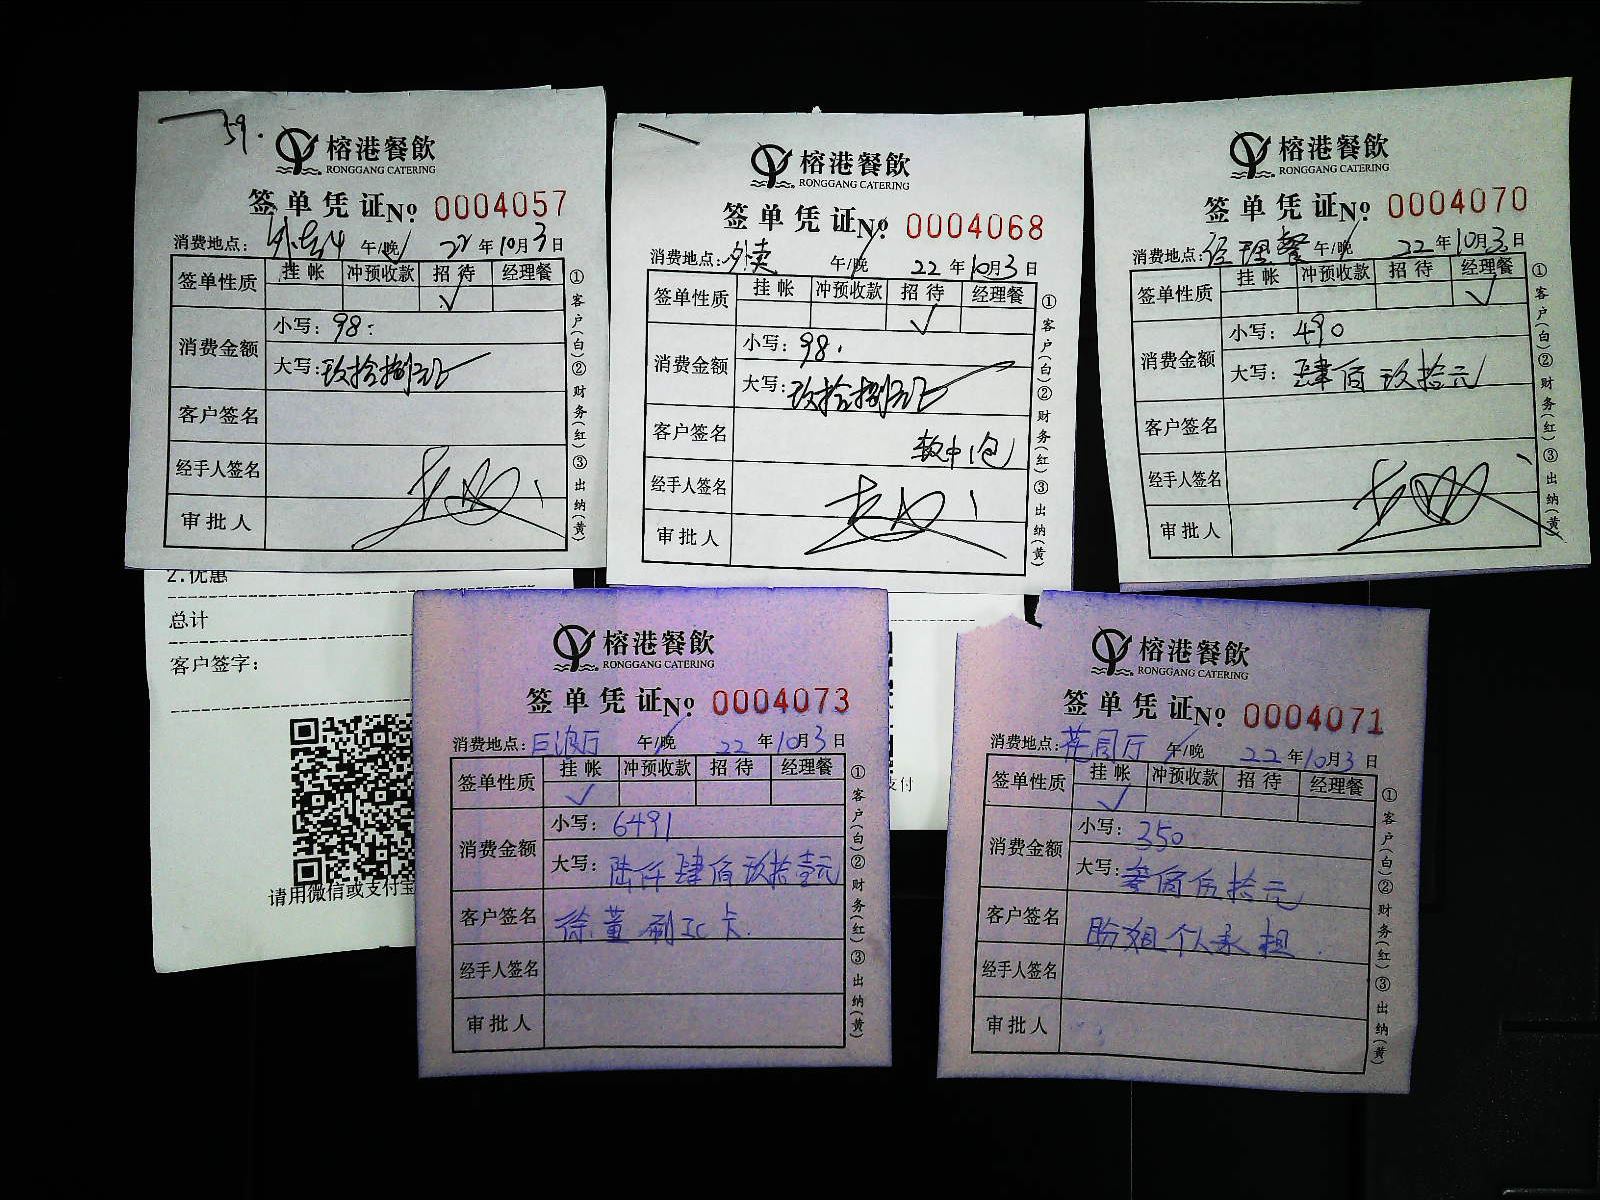 59.
榕港餐飲
RONGGANG CATERING
签单凭证 No 0004057
消费地点: 午/晚 22 年 10 月 3 日
签单性质 挂帐 冲预收款 招待 经理餐
√
消费金额 小写: 98.
大写: 玖拾捌元
客户签名
经手人签名
审批人
①客户(白)②财务(红)③出纳(黄)
榕港餐飲
RONGGANG CATERING
签单凭证 No 0004068
消费地点: 外卖 午/晚 22 年 10 月 3 日
签单性质 挂帐 冲预收款 招待 经理餐
√
消费金额 小写: 98.
大写: 玖拾捌元
客户签名
经手人签名
审批人
①客户(白)②财务(红)③出纳(黄)
榕港餐飲
RONGGANG CATERING
签单凭证 No 0004070
消费地点: 经理餐 午/晚 22 年 10 月 3 日
签单性质 挂帐 冲预收款 招待 经理餐
√
消费金额 小写: 490
大写: 肆佰玖拾元
客户签名
经手人签名
审批人
①客户(白)②财务(红)③出纳(黄)
2.优惠
总计
客户签字:
请用微信或支付宝
支付
榕港餐飲
RONGGANG CATERING
签单凭证 No 0004073
消费地点: 巨浪厅 午/晚 22 年 10 月 3 日
签单性质 挂帐 冲预收款 招待 经理餐
√
消费金额 小写: 6491
大写: 陆仟肆佰玖拾壹元
客户签名 徐董刷IC卡.
经手人签名
审批人
①客户(白)②财务(红)③出纳(黄)
榕港餐飲
RONGGANG CATERING
签单凭证 No 0004071
消费地点: 花园厅 午/晚 22 年 10 月 3 日
签单性质 挂帐 冲预收款 招待 经理餐
√
消费金额 小写: 350
大写: 叁佰伍拾元
客户签名 盼姐个人承担.
经手人签名
审批人
①客户(白)②财务(红)③出纳(黄)